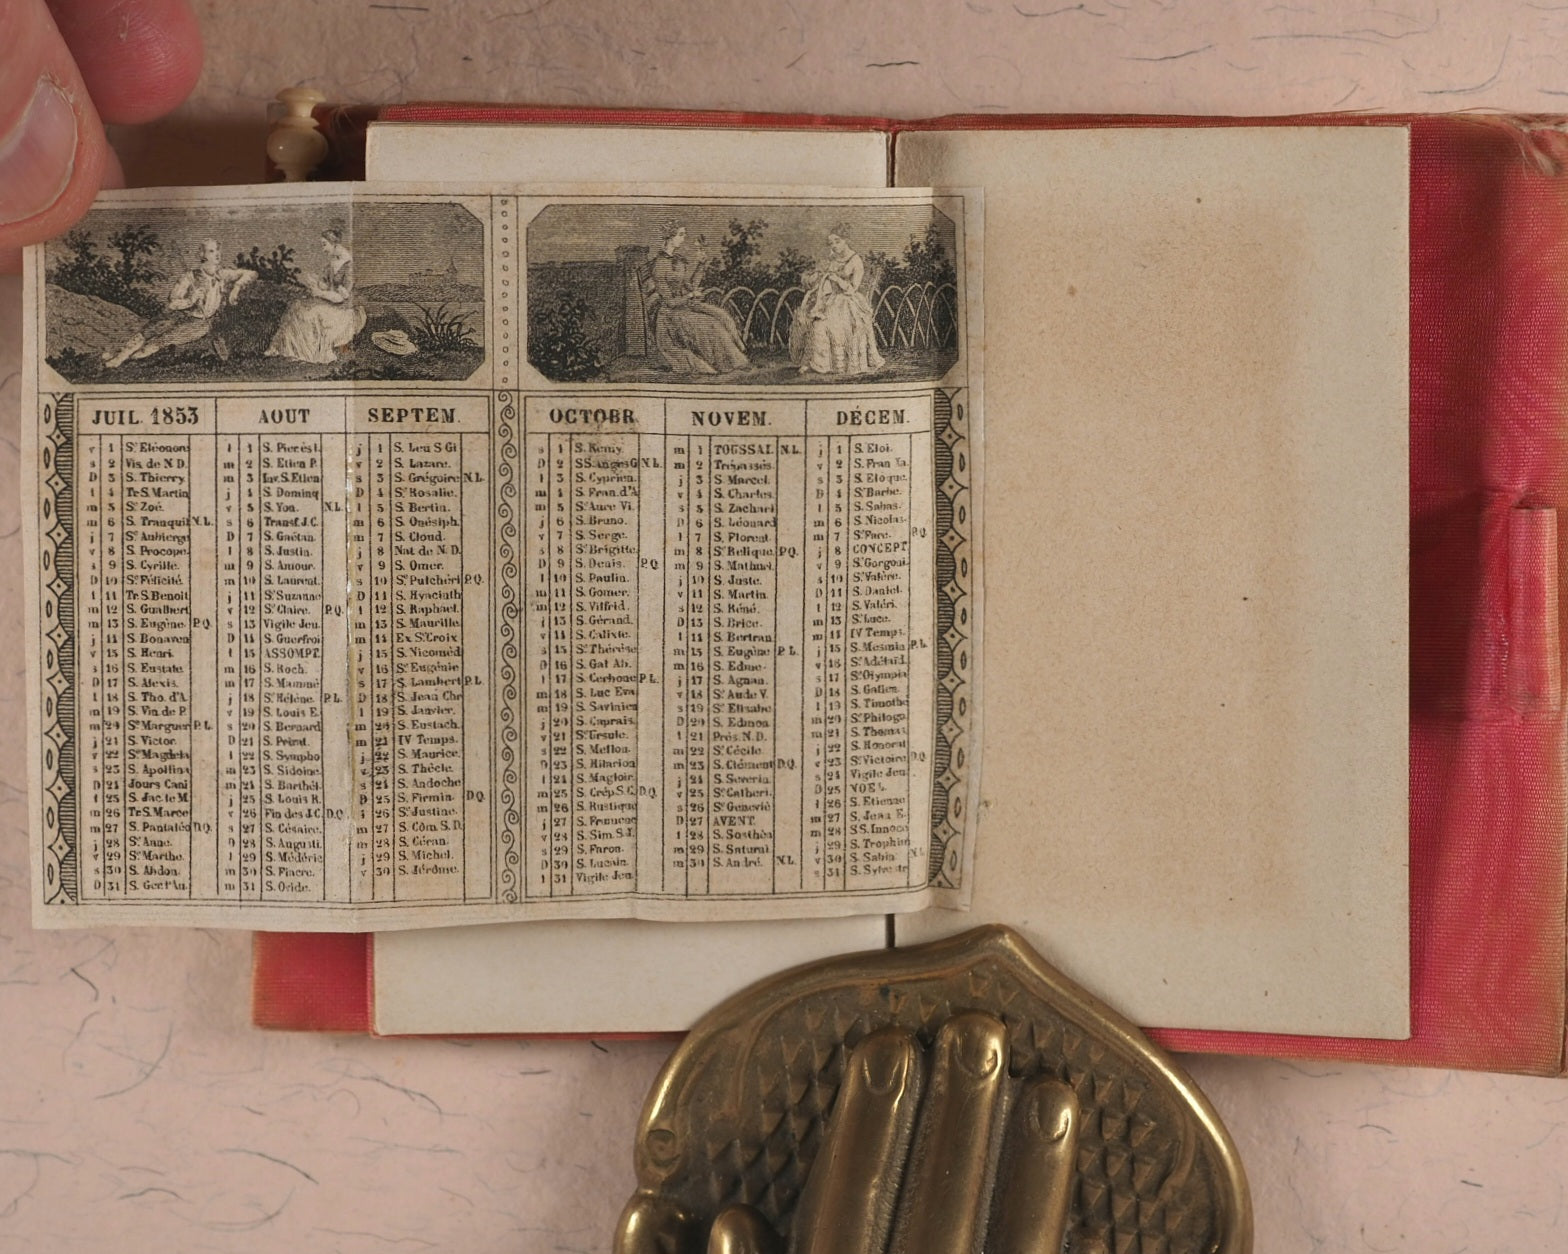 JUIL. 1853
v 1 Ste Eléonore
s 2 Vis. de N.D.
D 3 S. Thierry.
l 4 Tr. S. Martin
m 5 Ste Zoé.
m 6 S. Tranquil. N.L.
j 7 Ste Aubierge
v 8 S. Procope.
s 9 S. Cyrille.
D 10 Ste Félicité.
l 11 Tr. S. Benoit
m 12 S. Gualbert
m 13 S. Eugène. P.Q.
j 14 S. Bonaven
v 15 S. Henri.
s 16 S. Eustate.
D 17 S. Alexis.
l 18 S. Tho. d'A.
m 19 S. Vin. de P.
m 20 Ste Marguer P.L.
j 21 S. Victor.
v 22 Ste Magdel
s 23 S. Apollina
D 24 Jours Cani
l 25 S. Jac. le M.
m 26 Tr. S. Marce
m 27 S. Pantaléo D.Q.
j 28 Ste Anne.
v 29 Ste Marthe.
s 30 S. Abdon.
D 31 S. Ger. l'Au
AOUT
l 1 S. Pier. ès l.
m 2 S. Etien P.
m 3 Inv. S. Etien
j 4 S. Dominq
v 5 S. Yon. N.L.
s 6 Transf. J.C.
D 7 S. Gaëtan.
l 8 S. Justin.
m 9 S. Amour.
m 10 S. Laurent.
j 11 Ste Suzanne
v 12 Ste Claire. P.Q.
s 13 Vigile Jeu.
D 14 S. Guerfroi
l 15 ASSOMPT.
m 16 S. Roch.
m 17 S. Mammè
j 18 Ste Hélène. P.L.
v 19 S. Louis E.
s 20 S. Bernard
D 21 S. Privat.
l 22 S. Sympho
m 23 S. Sidoine.
m 24 S. Barthél
j 25 S. Louis R.
v 26 Fin des J.C. D.Q.
s 27 S. Césaire.
D 28 S. Augusti.
l 29 S. Médéric
m 30 S. Fiacre.
m 31 S. Ovide.
SEPTEM.
j 1 S. Leu S Gi
v 2 S. Lazare.
s 3 S. Grégoire N.L.
D 4 Ste Rosalie.
l 5 S. Bertin.
m 6 S. Onésiph.
m 7 S. Cloud.
j 8 Nat de N.D.
v 9 S. Omer.
s 10 Ste Pulchéri P.Q.
D 11 S. Hyacinth
l 12 S. Raphael.
m 13 S. Maurille.
m 14 Ex. Ste Croix
j 15 S. Nicomèd
v 16 Ste Eugénie
s 17 S. Lambert P.L.
D 18 S. Jean Chr
l 19 S. Janvier.
m 20 S. Eustach.
m 21 IV Temps.
j 22 S. Maurice.
v 23 S. Thècle.
s 24 S. Andoche
D 25 S. Firmin. D.Q.
l 26 Ste Justine.
m 27 S. Côm. S.D.
m 28 S. Céran.
j 29 S. Michel.
v 30 S. Jérôme.
OCTOBR
s 1 S. Remy.
D 2 SS. Anges G N.L.
l 3 S. Cyprien
m 4 S. Fran. d'A
m 5 Ste Aure Vi.
j 6 S. Bruno.
v 7 S. Serge.
s 8 Ste Brigitte.
D 9 S. Denis. P.Q.
l 10 S. Paulin.
m 11 S. Gomer.
m 12 S. Vilfrid.
j 13 S. Gérand.
v 14 S. Calixte.
s 15 Ste Thérèse
D 16 S. Gal Ab.
l 17 S. Cerbone P.L.
m 18 S. Luc Eva
m 19 S. Savinien
j 20 S. Caprais.
v 21 Ste Ursule.
s 22 S. Mellon.
D 23 S. Hilarion
l 24 S. Magloir.
m 25 S. Crép. S.C. D.Q.
m 26 S. Rustique
j 27 S. Frumenc
v 28 S. Sim. S.J.
s 29 S. Faron.
D 30 S. Lucain.
l 31 Vigile Jeu.
NOVEM.
m 1 TOUSSAI. N.L.
m 2 Trépassés
j 3 S. Marcel.
v 4 S. Charles
s 5 S. Zachari
D 6 S. Léonard
l 7 S. Florent.
m 8 Ste Relique. P.Q.
m 9 S. Mathuri
j 10 S. Juste.
v 11 S. Martin.
s 12 S. Réné.
D 13 S. Brice.
l 14 S. Bertran
m 15 S. Eugène P.L.
m 16 S. Edme.
j 17 S. Agnan.
v 18 Ste Aude V.
s 19 Ste Elisabe
D 20 S. Edmon.
l 21 Prés. N.D.
m 22 Ste Cécile.
m 23 S. Clément D.Q.
j 24 S. Severin
v 25 Ste Catheri.
s 26 Ste Geneviè
D 27 AVENT.
l 28 S. Sosthèn
m 29 S. Saturni
m 30 S. André. N.L.
DÉCEM.
j 1 S. Eloi.
v 2 S. Fran Xa.
s 3 S. Eloque.
D 4 Ste Barbe.
l 5 S. Sabas.
m 6 S. Nicolas.
m 7 Ste Fare. P.Q.
j 8 CONCEPT.
v 9 Ste Gorgoni
s 10 Ste Valère.
D 11 S. Daniel.
l 12 S. Valéri.
m 13 Ste Luce.
m 14 IV Temps.
j 15 S. Mesmin P.L.
v 16 Ste Adélaïd.
s 17 Ste Olympia
D 18 S. Gatien.
l 19 S. Timothé
m 20 S. Philogo
m 21 S. Thomas
j 22 S. Honorat
v 23 Ste Victoire D.Q.
s 24 Vigile Jeu.
D 25 NOEL.
l 26 S. Etienne
m 27 S. Jean E.
m 28 SS. Innoce
j 29 S. Trophim
v 30 S. Sabin. N.L.
s 31 S. Sylvestr